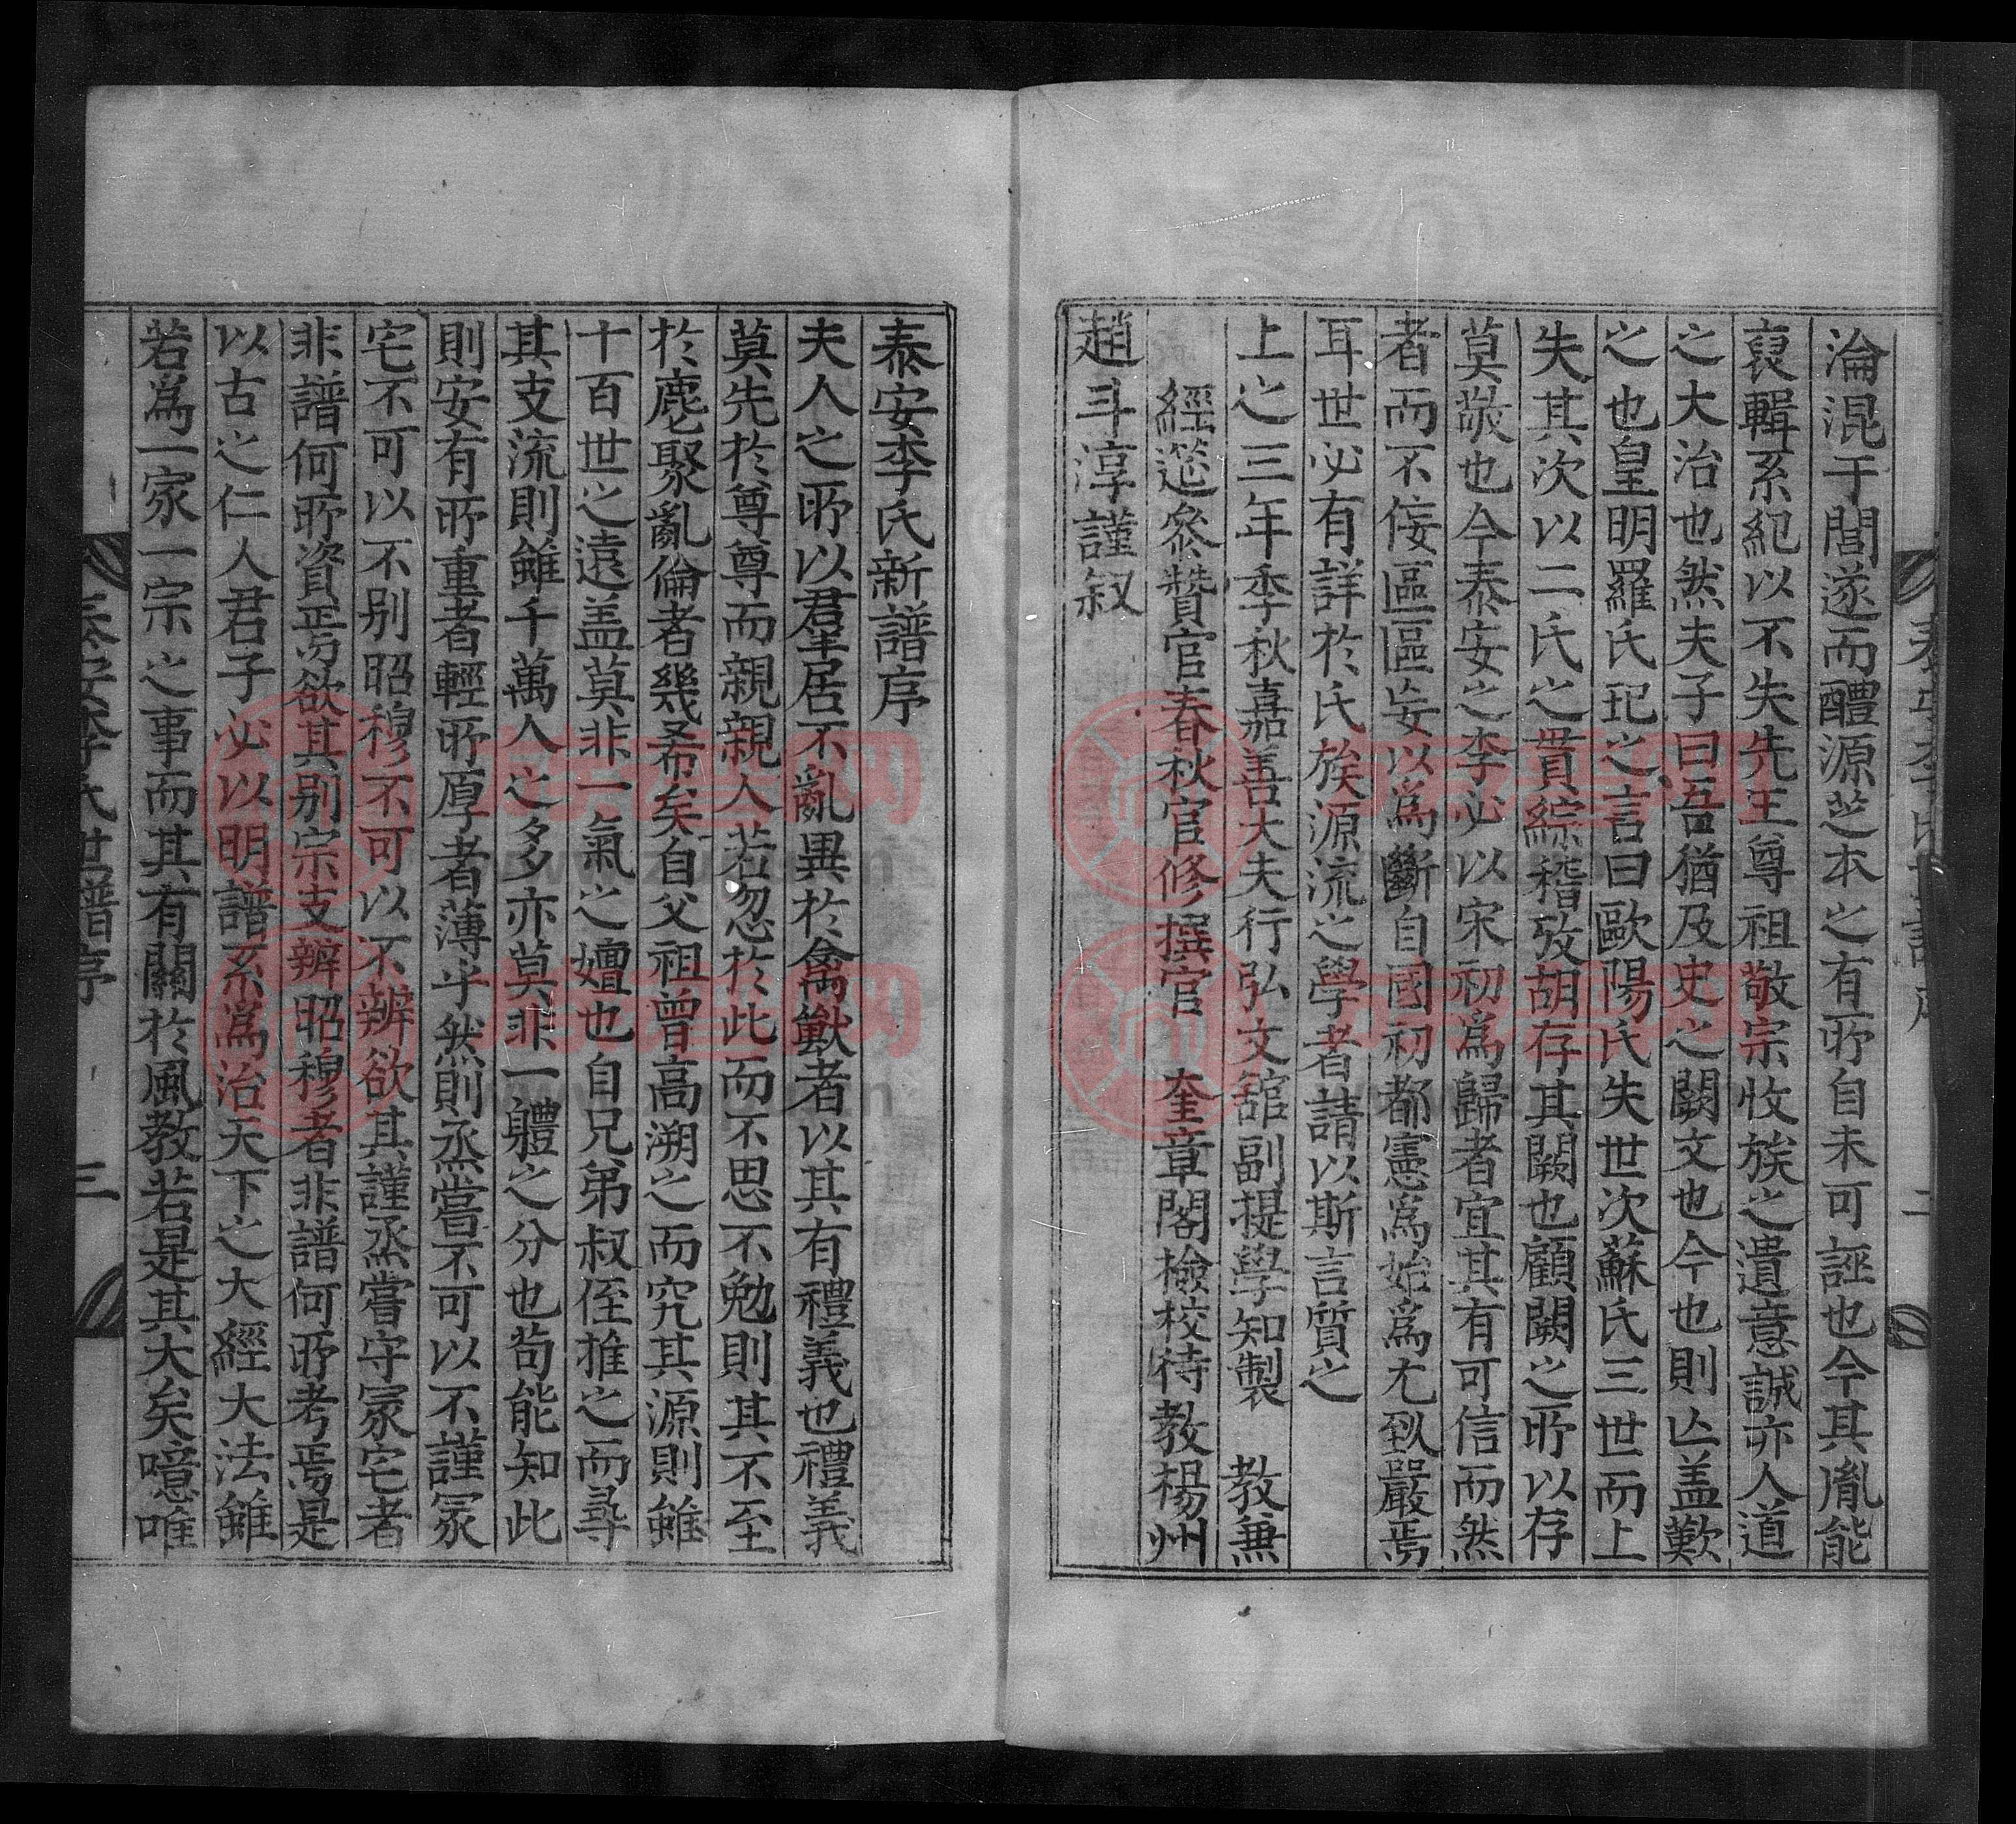 淪混于閭遂而醴源芝本之有所自未可誣也今其胤能
裒輯系紀以不失先王尊祖敬宗收族之遺意誠亦人道
之大治也然夫子曰吾猶及史之闕文也今也則亾盖歎
之也皇明羅氏玘之言曰歐陽氏失世次蘇氏三世而上
失其次以二氏之貫綜稽攷胡存其闕也顧闕之所以存
莫敬也今泰安之李必以宋初爲歸者宜其有可信而然
者而不佞區區妄以爲斷自國初都憲爲始爲尤㪽嚴焉
耳世必有詳於氏族源流之學者請以斯言質之
上之三年季秋嘉善大夫行弘文舘副提學知製 教兼
經筵叅贊官春秋官修撰官 奎章閣檢校待教楊州
趙斗淳謹叙
泰安李氏新譜序
夫人之所以羣居不亂異於禽獸者以其有禮義也禮義
莫先於尊尊而親親人若忽於此而不思不勉則其不至
於麀聚亂倫者幾希矣自父祖曾高溯之而究其源則雖
十百世之遠盖莫非一氣之嬗也自兄弟叔侄推之而尋
其支流則雖千萬人之多亦莫非一軆之分也苟能知此
則安有所重者輕所厚者薄乎然則烝嘗不可以不謹冢
宅不可以不别昭穆不可以不辨欲其謹烝嘗守冢宅者
非譜何所資焉欲其别宗支辨昭穆者非譜何所考焉是
以古之仁人君子必以明譜系爲治天下之大經大法雖
若爲一家一宗之事而其有關於風教若是其大矣噫唯
泰安李氏世譜序 三